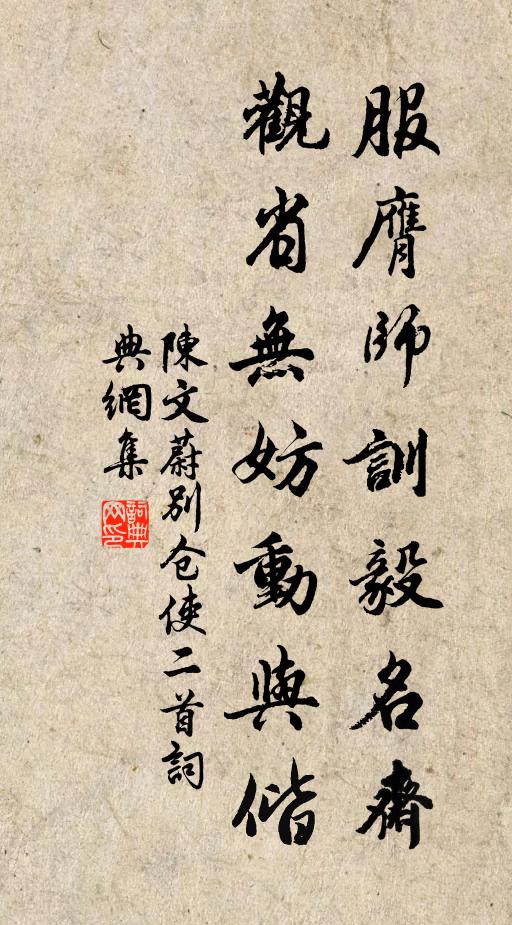 服膺師訓毅名齋
觀省無妨動與偕
陳文蔚別仓使二首詞
典網集
詞典網印